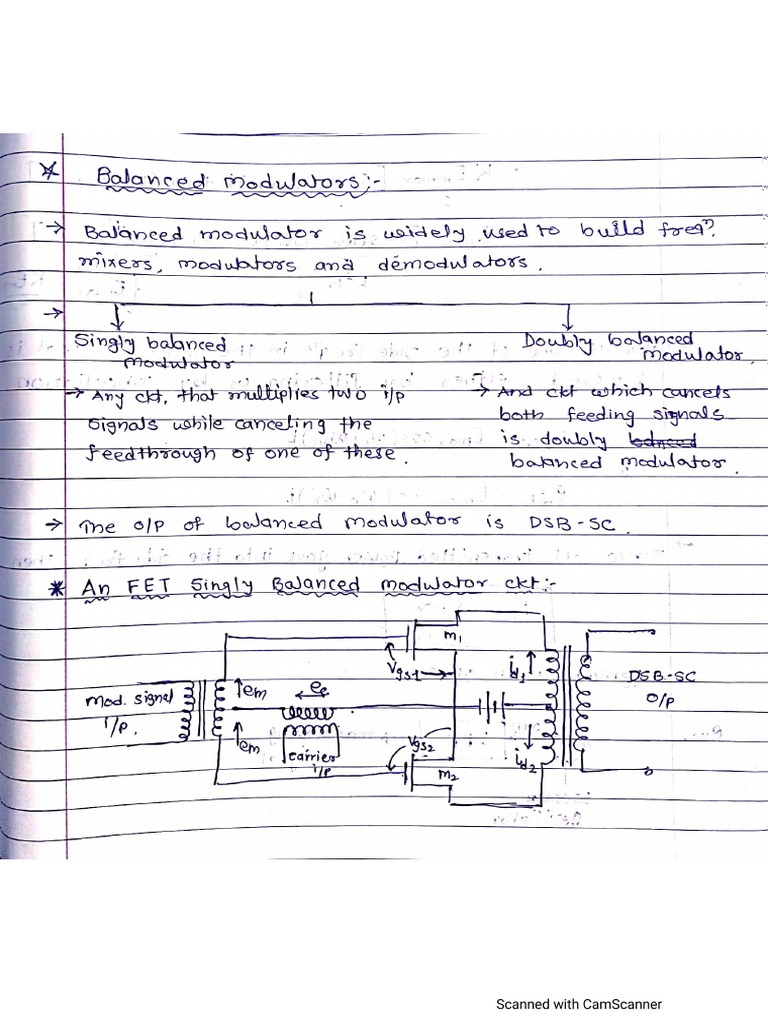 * Balanced modulators:-
→ Balanced modulator is widely used to build freqⁿ.
mixers, modulators and demodulators.
→
Singly balanced
modulator
Doubly balanced
modulator.
→ Any ckt, that multiplies two i/p
signals while canceling the
feedthrough of one of these.
→ And ckt which cancels
both feeding signals
is doubly balanced
balanced modulator.
→ The O/P of balanced modulator is DSB-SC.
* An FET Singly Balanced modulator ckt:-
Mod. signal
i/p.
em
em
ec
carrier
i/p
Vgs1
Vgs2
m1
m2
id1
id2
DSB-SC
O/p
Scanned with CamScanner